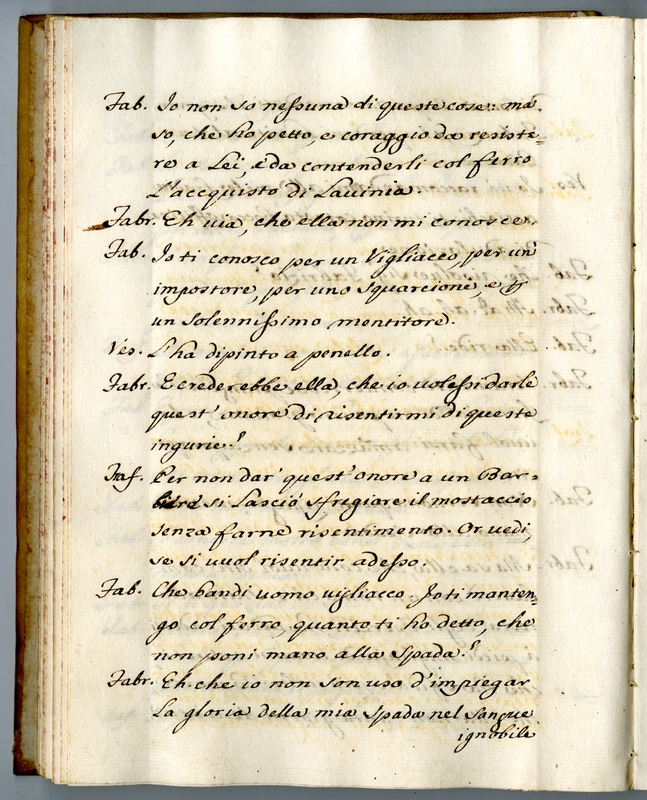 Fab. Io non so neſsuna di queste cose: ma
so, che ho petto, e coraggio da resiste-
re a Lei, e da contenderli col ferro
l'accquisto di Lavinia.
Fabr. Eh via, che ella non mi conosce.
Fab. Io ti conosco per un Vigliacco, per un
impostore, per uno squarcione, e
un solenniſsimo mentitore.
Ves. L'ha dipinto a penello.
Fabr. E crederebbe ella, che io voleſsi darle
quest' onore di risentirmi di queste
ingurie?
Staf. Per non dar' quest' onore a un Bar=
biere si lasciò sfregiare il mostaccio
senza farne risentimento. Or vedi,
se si vuol risentir adesso.
Fab. Che bandi uomo vigliacco. Io ti manten-
go col ferro, quanto ti ho detto, che
non poni mano alla Spada?
Fabr. Eh che io non son uso d'impiegar
la gloria della mia Spada nel Sangue
ignobile